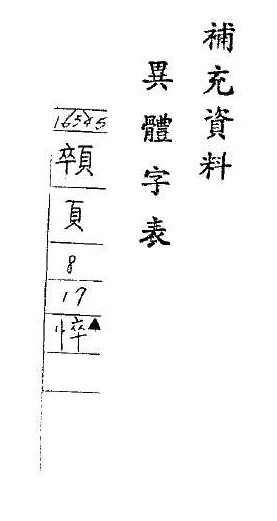 補充資料
異體字表
16545
顇
頁
8
17
悴▲